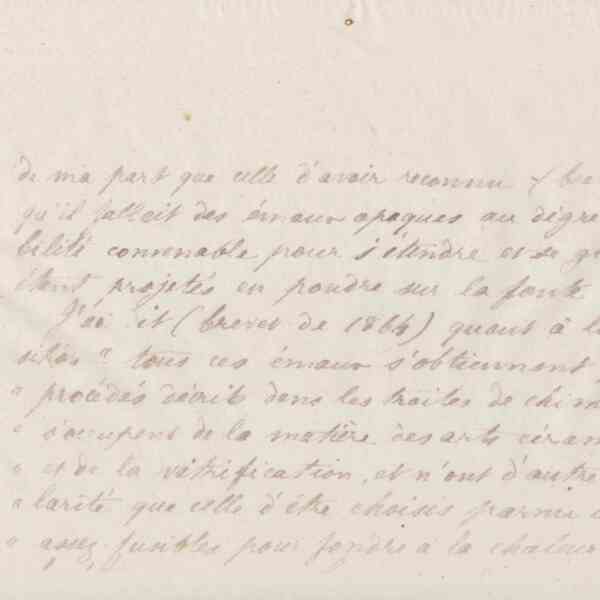 de ma part que celle d'avoir reconnu (bre
qu'il fallait des émaux opaques au dégré
bilité convenable pour s'étendre et se
étant projetés en poudre sur la fonte
J'ai dit (brevet de 1864) quant à l
sitôs " tous ces émaux s'obtiennent
" procédés décrits dans les traités de chim
" s'occupent de la matière des arts céram
" et de la vitrification, et n'ont d'autre
" larité que celle d'être choisis parmi
" assez fusibles pour fondre à la chaleur